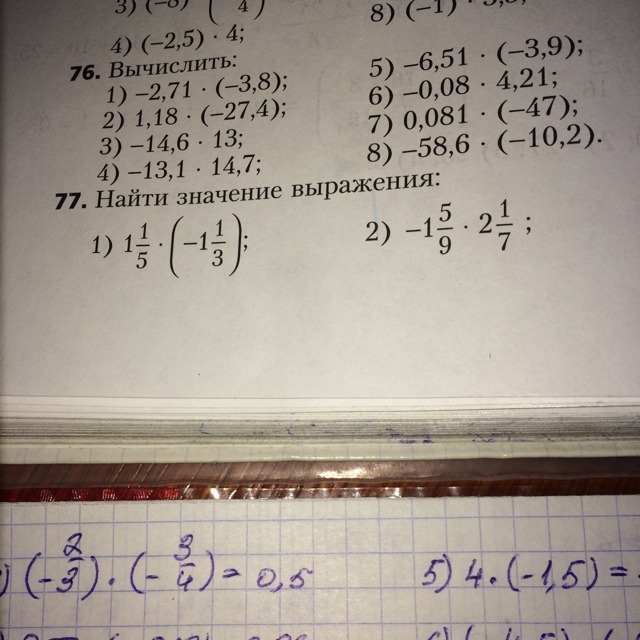 3) (−8) · (
4
)
8) (−1) ·
4) (−2,5) · 4;
76. Вычислить:
1) −2,71 · (−3,8);
2) 1,18 · (−27,4);
3) −14,6 · 13;
4) −13,1 · 14,7;
5) −6,51 · (−3,9);
6) −0,08 · 4,21;
7) 0,081 · (−47);
8) −58,6 · (−10,2).
77. Найти значение выражения:
1) 1 1/5 · (−1 1/3);
2) −1 5/9 · 2 1/7 ;
) (−2/3) · (−3/4) = 0,5
5) 4 · (−1,5) =